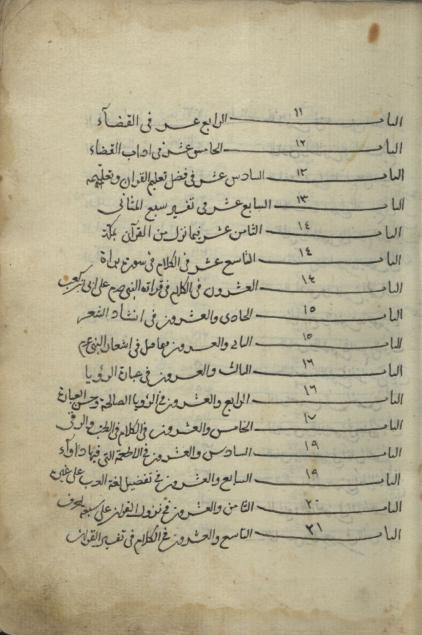 الباب ١١ الرابع عشر فى القضاء
الباب ١٢ الخامس عشر فى اداب القضاء
الباب ١٢ السادس عشر فى فضل تعليم القران وتعليمه
الباب ١٣ السابع عشر فى تفسير سبع المثانى
الباب ١٤ الثامن عشر فيما نزل من القرآن بمكة
الباب ١٤ التاسع عشر فى الكلام فى سورة براة
الباب ١٤ العشرون فى الكلام فى قراته النبى صم على ابى بن كعب
الباب ١٥ الحادى والعشرون فى انشاد الشعر
الباب ١٥ الثانى والعشرون فى اشعار النبى عم
الباب ١٦ الثالث والعشرون فى عبارة الرؤيا
الباب ١٦ الرابع والعشرون فى الرؤيا الصالحة وحسن العبارة
الباب ١٧ الخامس والعشرون فى الكلام فى الطب والرقى
الباب ١٩ السادس والعشرون فى الاطعمة التى فيها دواء
الباب ١٩ السابع والعشرون فى تفضيل لغة العرب على غيره
الباب ٢٠ الثامن والعشرون فى نزول القران على سبعة احرف
الباب ٢١ التاسع والعشرون فى الكلام فى تفسير القران